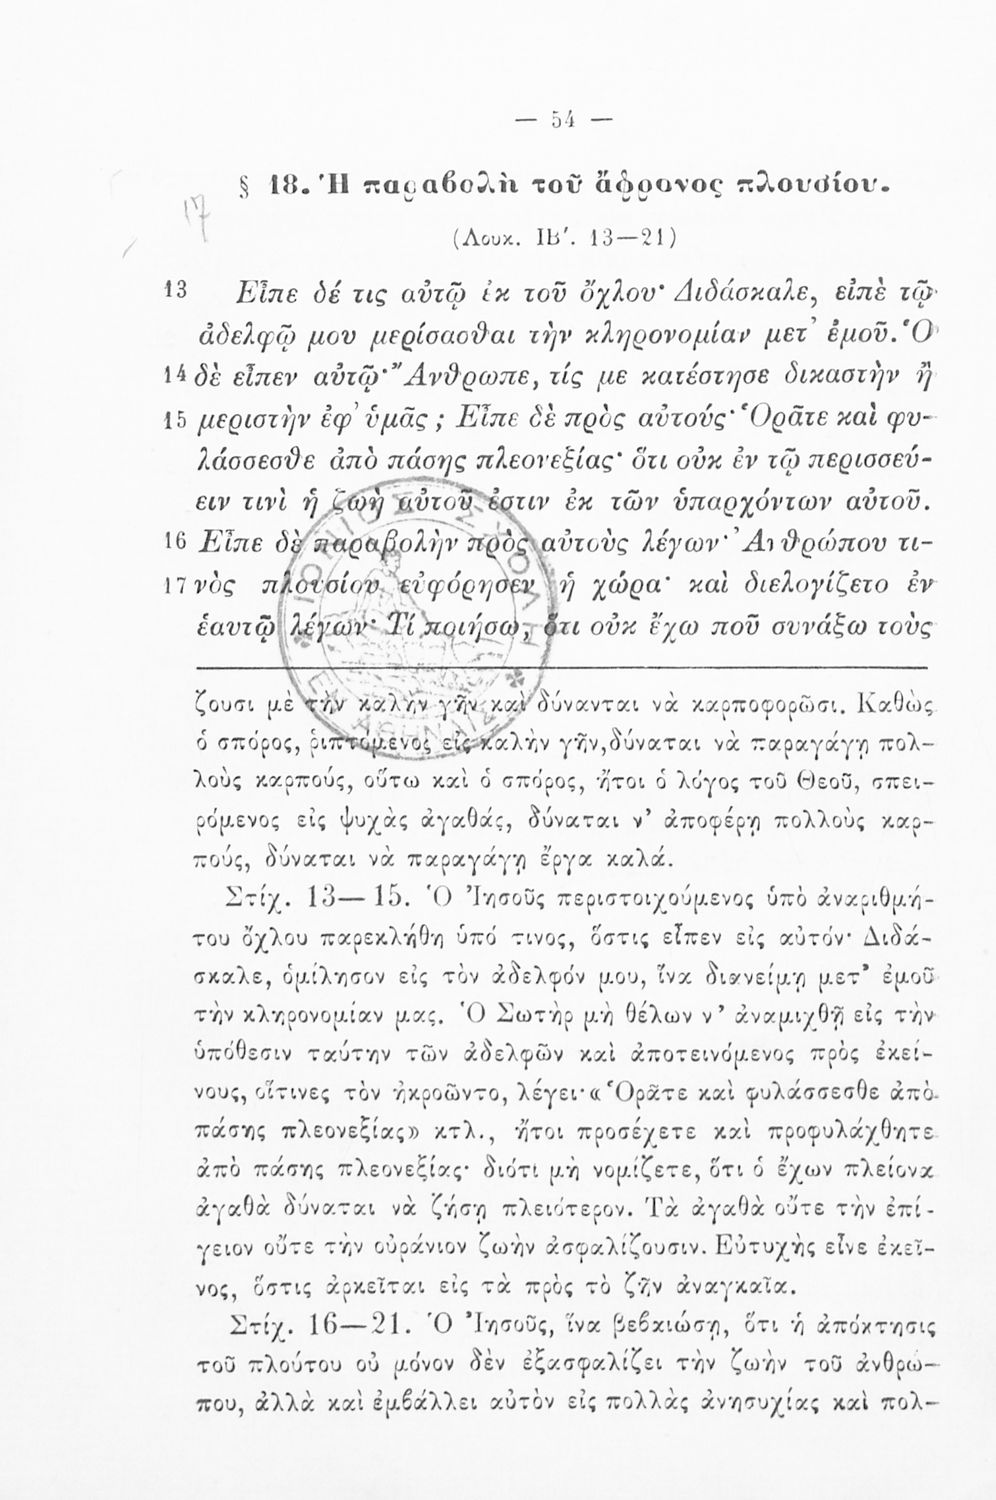 — 54 —
§ 18. Ἡ παραβολὴ τοῦ ἄφρονος πλουσίου.
17
(Λουκ. ΙΒ′. 13—21)
13 Εἶπε δέ τις αὐτῷ ἐκ τοῦ ὄχλου· Διδάσκαλε, εἰπὲ τῷ
ἀδελφῷ μου μερίσασθαι τὴν κληρονομίαν μετ᾿ ἐμοῦ. Ὁ
14 δὲ εἶπεν αὐτῷ· Ἄνθρωπε, τίς με κατέστησε δικαστὴν ἢ
15 μεριστὴν ἐφ᾿ ὑμᾶς ; Εἶπε δὲ πρὸς αὐτούς· Ὁρᾶτε καὶ φυ-
λάσσεσθε ἀπὸ πάσης πλεονεξίας· ὅτι οὐκ ἐν τῷ περισσεύ-
ειν τινὶ ἡ ζωὴ αὐτοῦ ἐστιν ἐκ τῶν ὑπαρχόντων αὐτοῦ.
16 Εἶπε δὲ παραβολὴν πρὸς αὐτοὺς λέγων· Ἀνθρώπου τι-
17 νὸς πλουσίου εὐφόρησεν ἡ χώρα· καὶ διελογίζετο ἐν
ἑαυτῷ λέγων· Τί ποιήσω, ὅτι οὐκ ἔχω ποῦ συνάξω τοὺς
ΙΟΝΙΟΣ ΣΧΟΛΗ
ΕΝ ΑΘΗΝΑΙΣ
ζουσι μὲ τὴν καλὴν γῆν καὶ δύνανται νὰ καρποφορῶσι. Καθὼς
ὁ σπόρος, ῥιπτόμενος εἰς καλὴν γῆν, δύναται νὰ παραγάγῃ πολ-
λοὺς καρπούς, οὕτω καὶ ὁ σπόρος, ἤτοι ὁ λόγος τοῦ Θεοῦ, σπει-
ρόμενος εἰς ψυχὰς ἀγαθάς, δύναται ν᾿ ἀποφέρῃ πολλοὺς καρ-
πούς, δύναται νὰ παραγάγῃ ἔργα καλά.
Στίχ. 13—15. Ὁ Ἰησοῦς περιστοιχούμενος ὑπὸ ἀναριθμή-
του ὄχλου παρεκλήθη ὑπό τινος, ὅστις εἶπεν εἰς αὐτόν· Διδά-
σκαλε, ὁμίλησον εἰς τὸν ἀδελφόν μου, ἵνα διανείμῃ μετ᾿ ἐμοῦ
τὴν κληρονομίαν μας. Ὁ Σωτὴρ μὴ θέλων ν᾿ ἀναμιχθῇ εἰς τὴν
ὑπόθεσιν ταύτην τῶν ἀδελφῶν καὶ ἀποτεινόμενος πρὸς ἐκεί-
νους, οἵτινες τὸν ἠκροῶντο, λέγει· «Ὁρᾶτε καὶ φυλάσσεσθε ἀπὸ
πάσης πλεονεξίας» κτλ., ἤτοι προσέχετε καὶ προφυλάχθητε
ἀπὸ πάσης πλεονεξίας· διότι μὴ νομίζετε, ὅτι ὁ ἔχων πλείονα
ἀγαθὰ δύναται νὰ ζήσῃ πλειότερον. Τὰ ἀγαθὰ οὔτε τὴν ἐπί-
γειον οὔτε τὴν οὐράνιον ζωὴν ἀσφαλίζουσιν. Εὐτυχὴς εἶνε ἐκεῖ-
νος, ὅστις ἀρκεῖται εἰς τὰ πρὸς τὸ ζῆν ἀναγκαῖα.
Στίχ. 16—21. Ὁ Ἰησοῦς, ἵνα βεβαιώσῃ, ὅτι ἡ ἀπόκτησις
τοῦ πλούτου οὐ μόνον δὲν ἐξασφαλίζει τὴν ζωὴν τοῦ ἀνθρώ-
που, ἀλλὰ καὶ ἐμβάλλει αὐτὸν εἰς πολλὰς ἀνησυχίας καὶ πολ-